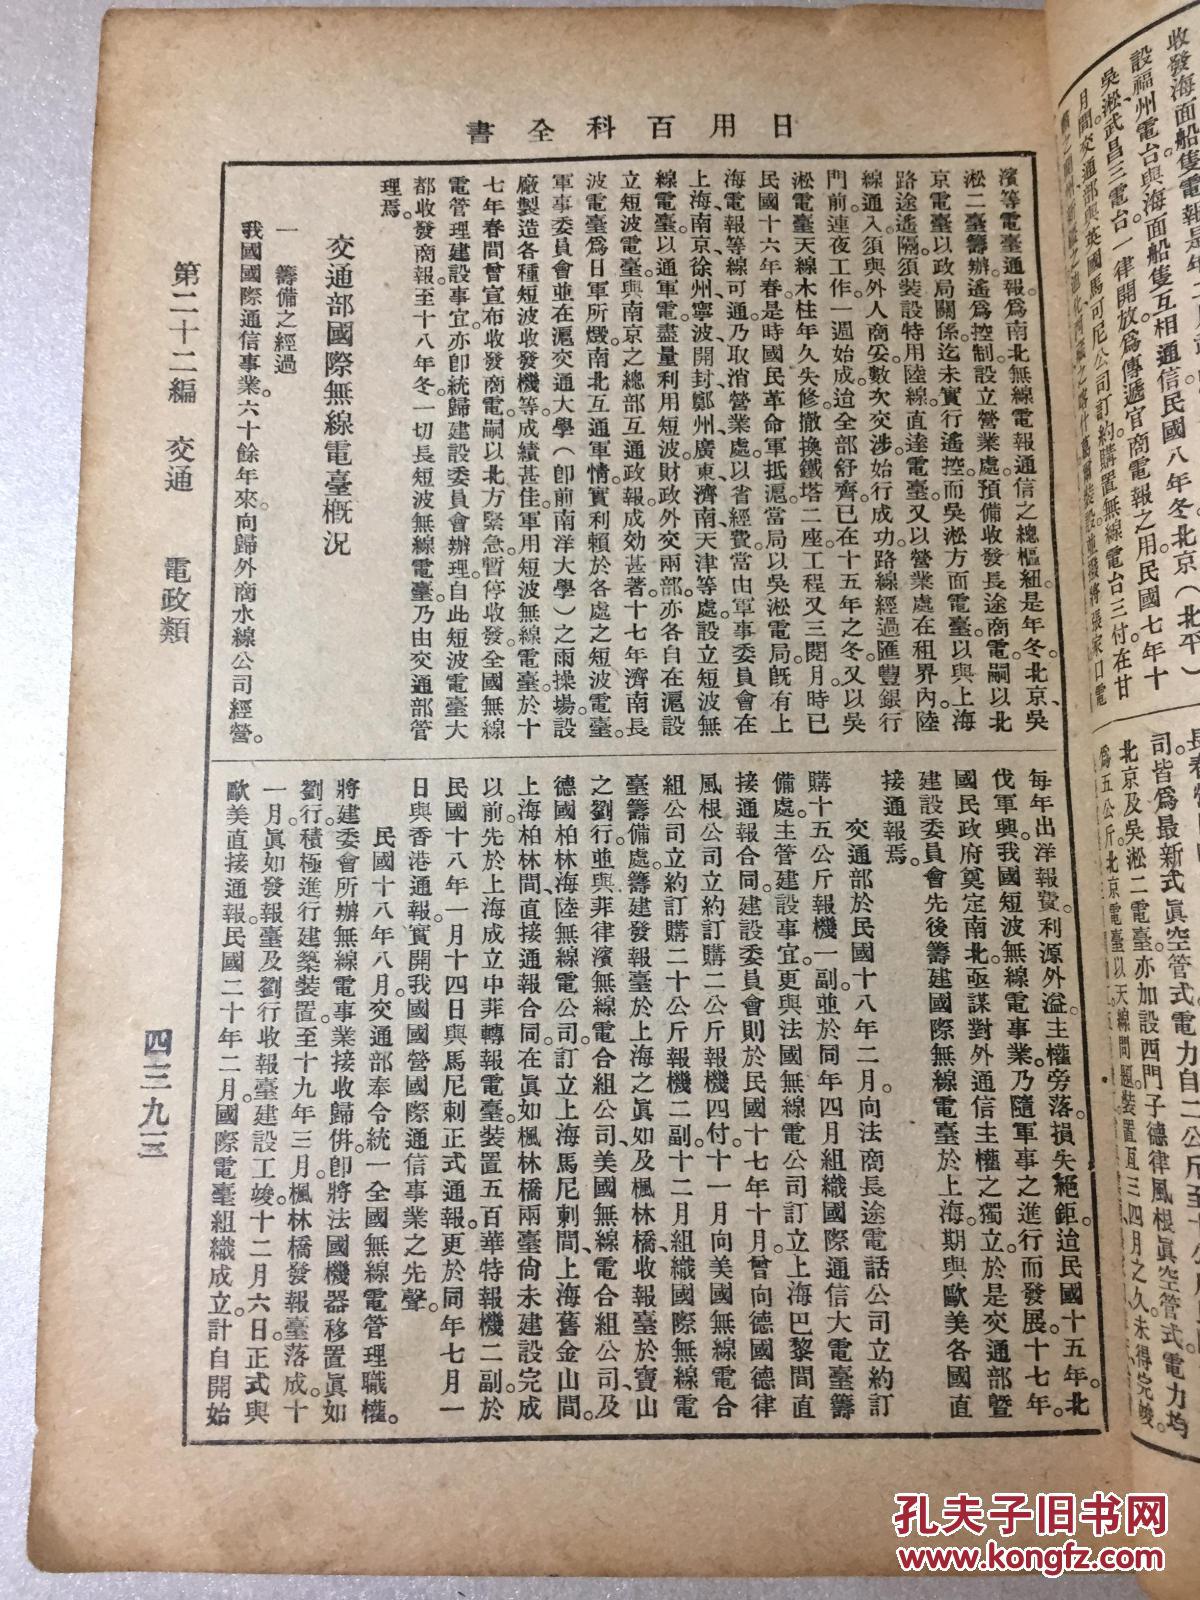 日用百科全書
濱等電臺通報爲南北無線電報通信之總樞紐。是年冬、北京、吳
淞二臺籌辦遙爲控制設立營業處預備收發長途商電嗣以北
京電臺以政局關係迄未實行遙控。而吳淞方面電臺以與上海
路途遙隔須裝設特用陸線直達電臺又以營業處在租界內陸
線通入須與外人商妥數次交涉始行成功路線經過匯豐銀行
門前連夜工作一週始成迨全部舒齊已在十五年之冬又以吳
淞電臺天線木柱年久失修撤換鐵塔二座工程又三閱月時已
民國十六年春是時國民革命軍抵滬當局以吳淞電局既有上
海電報等線可通乃取消營業處。以省經費當由軍事委員會在
上海南京徐州寧波開封鄭州廣東濟南天津等處設立短波無
線電臺以通軍電。盡量利用短波財政外交兩部亦各自在滬設
立短波電臺與南京之總部互通政報成効甚著。十七年濟南長
波電臺爲日軍所燬南北互通軍情實利賴於各處之短波電臺。
軍事委員會並在滬交通大學（卽前南洋大學）之雨操場設
廠製造各種短波收發機等。成績甚佳。軍用短波無線電臺於十
七年春間曾宣布收發商電嗣以北方緊急暫停收發全國無線
電管理建設事宜亦卽統歸建設委員會辦理。自此短波電臺大
都收發商報。至十八年冬一切長短波無線電臺乃由交通部管
理焉。
交通部國際無線電臺概況
一　籌備之經過
我國國際通信事業。六十餘年來。向歸外商水線公司經營。
每年出洋報費。利源外溢。主權旁落。損失絕鉅迨民國十五年。北
伐軍興。我國短波無線電事業。乃隨軍事之進行而發展。十七年。
國民政府奠定南北亟謀對外通信主權之獨立。於是交通部暨
建設委員會先後籌建國際無線電臺於上海期與歐美各國直
接通報焉。
交通部於民國十八年二月。向法商長途電話公司立約訂
購十五公斤報機一副。並於同年四月組織國際通信大電臺籌
備處。主管建設事宜。更與法國無線電公司訂立上海巴黎間直
接通報合同。建設委員會則於民國十七年十月。曾向德國德律
風根公司立約訂購二公斤報機四付。十一月向美國無線電合
組公司立約訂購二十公斤報機二副。十二月組織國際無線電
臺籌備處。籌建發報臺於上海之眞如及楓林橋。收報臺於寶山
之劉行。並與菲律濱無線電合組公司、美國無線電合組公司及
德國柏林海陸無線電公司。訂立上海馬尼剌間、上海舊金山間。
上海柏林間、直接通報合同。在眞如楓林橋兩臺尙未建設完成
以前。先於上海成立中菲轉報電臺。裝置五百華特報機二副於
民國十八年一月十四日與馬尼刺正式通報。更於同年七月一
日與香港通報。實開我國國營國際通信事業之先聲。
民國十八年八月。交通部奉令統一全國無線電管理職權。
將建委會所辦無線電事業接收歸併。卽將法國機器移置眞如
劉行。積極進行建築裝置。至十九年三月。楓林橋發報臺落成。十
一月。眞如發報臺及劉行收報臺建設工竣。十二月六日。正式與
歐美直接通報。民國二十年二月。國際電臺組織成立。計自開始
第二十二編　交通　電政類
四三九三
設福州電台與海面船隻互相通信。民國八年冬北京（北平）
吳淞武昌三電台。一律開放爲傳遞官商電報之用。民國七年十
月間交通部與英國馬可尼公司訂約購置無線電台三付在甘
司皆爲最新式眞空管式。電力自二公斤至
北京及吳淞二電臺。亦加設西門子德律風根眞空管式電力均
爲五公斤。北京電臺以天線問題裝置亙三四月之久。未得完竣。
孔夫子旧书网
www.kongfz.com